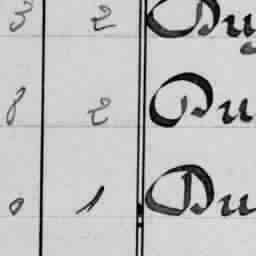 3 2 Du
8 2 Du
0 1 Du